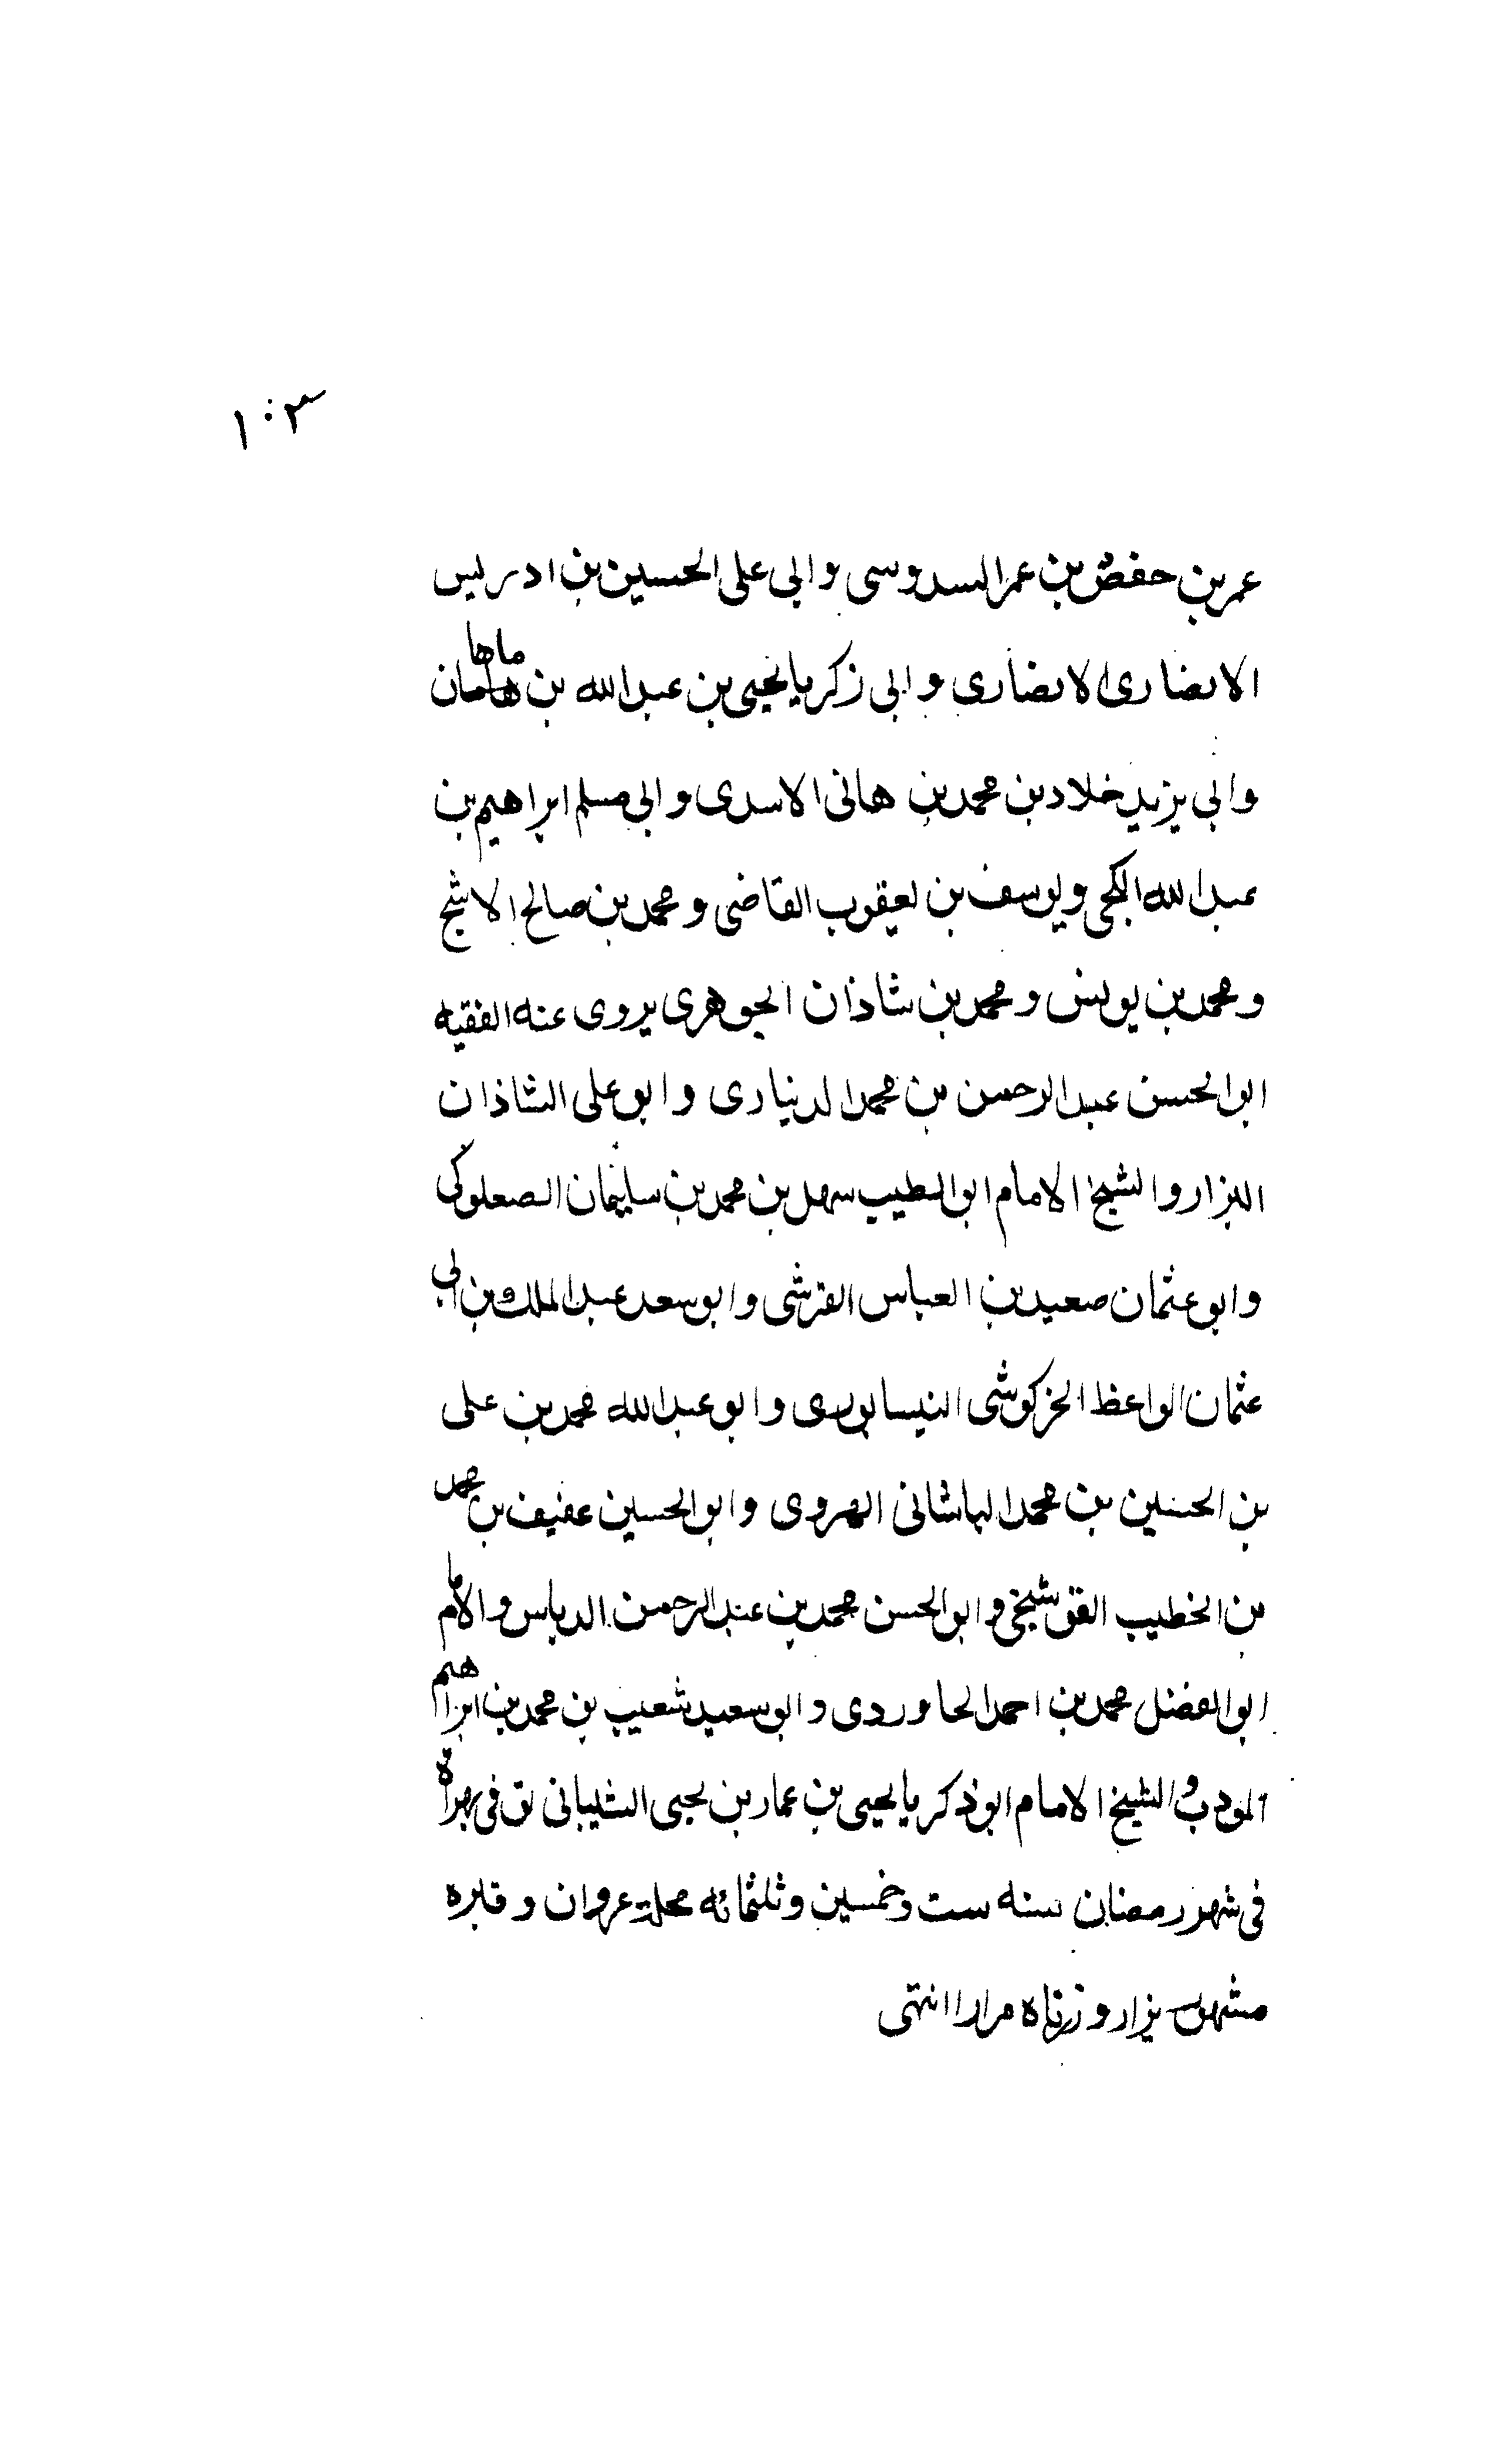 ١٠٣
عمر بن حفص بن عمر السدوسى وابى على الحسين بن ادريس
الانصارى الانصارى وابى زكريا يحيى بن عبد الله بن ماهان
وابى يزيد خلاد بن محمد بن هانى الاسدى وابى مسلم ابراهيم بن
عبد الله الكجى ويوسف بن يعقوب القاضى ومحمد بن صالح الاشج
ومحمد بن يونس ومحمد بن شاذان الجوهرى يروى عنه الفقيه
ابو الحسن عبد الرحمن بن محمد الدينارى وابو على الشاذان
البزار والشيخ الامام ابو الطيب سهل بن محمد بن سليمان الصعلوكى
وابو عثمان صعيد بن العباس القرشى وابو سعد عبد الملك بن ابى
عثمان الواعظ الخركوشى النيسابورى وابو عبد الله محمد بن على
بن الحسين بن محمد الباشانى الهروى وابو الحسين عفيف بن محمد
بن الخطيب القوشنجى وابو الحسن محمد بن عبد الرحمن الدباس والامام
ابو الفضل محمد بن احمد الجاوردى وابو سعيد شعيب بن محمد بن ابراهيم
المودب والشيخ الامام ابو ذكريا يحيى بن عمار بن يحيى الشيبانى توفى بهراة
فى شهر رمضان سنه ست وخمسين وثلثمائه محلة عروان وقبره
مشهور يزار وزرناه مرارا انتهى